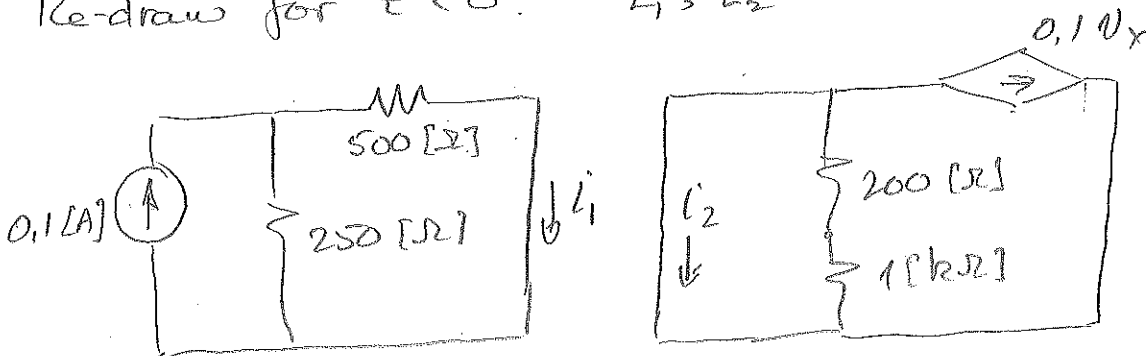 Re-draw for t < 0. i₁, i₂
0,1 Vx
500 [Ω]
0,1 [A]
250 [Ω]
i₁
i₂
200 [Ω]
1 [kΩ]